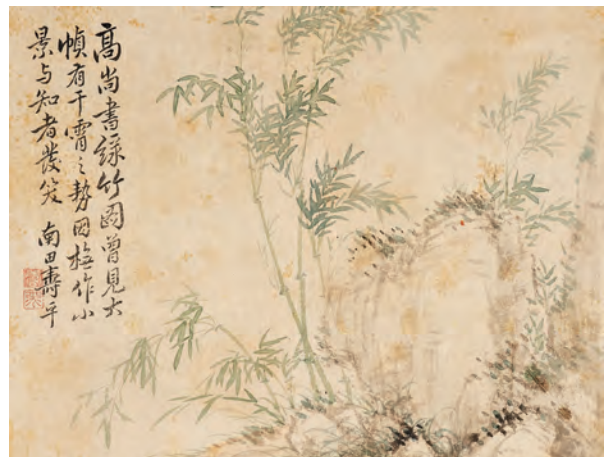 高尚書綠竹圖曾見大
幀有干霄之勢因橅作小
景与知者發笑 南田壽平